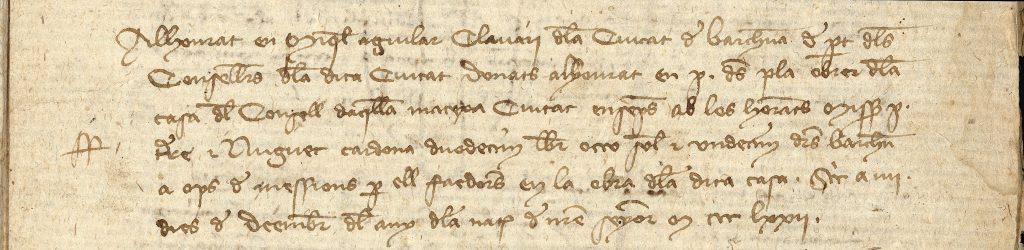 Allhonrat en Miqel aguilar Clavari dla Ciutat de barchna de pt dls
Consellers dla dita Ciutat donats alhonrat en p. des pla obrer dla
casa dl Consell daqlla matexa Ciutat ensemps ab los honrats Miss p.
e Nuguet cardona duodecim llbr octo sol e undecim drs barchn
a ops de messions p ell faedors en la obra dla dita casa. Scrit a iiii.
dies de Decembr dl any dla nat de nre senyor M ccc lxxii.